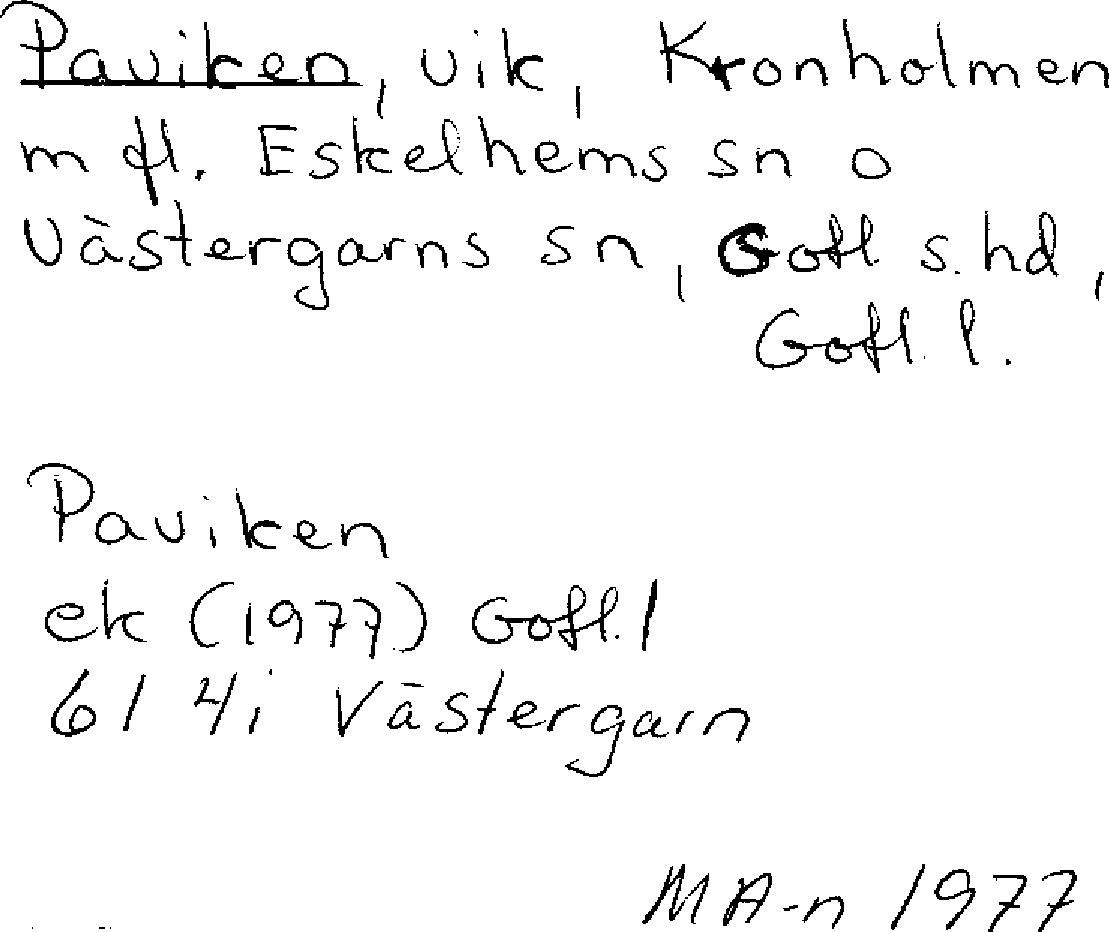 Paviken, vik, Kronholmen
m fl. Eskelhems sn o
Västergarns sn, Gotl s. hd,
Gotl. l.
Paviken
ek (1977) Gotl. l
6I 4i Västergarn
MA-n 1977